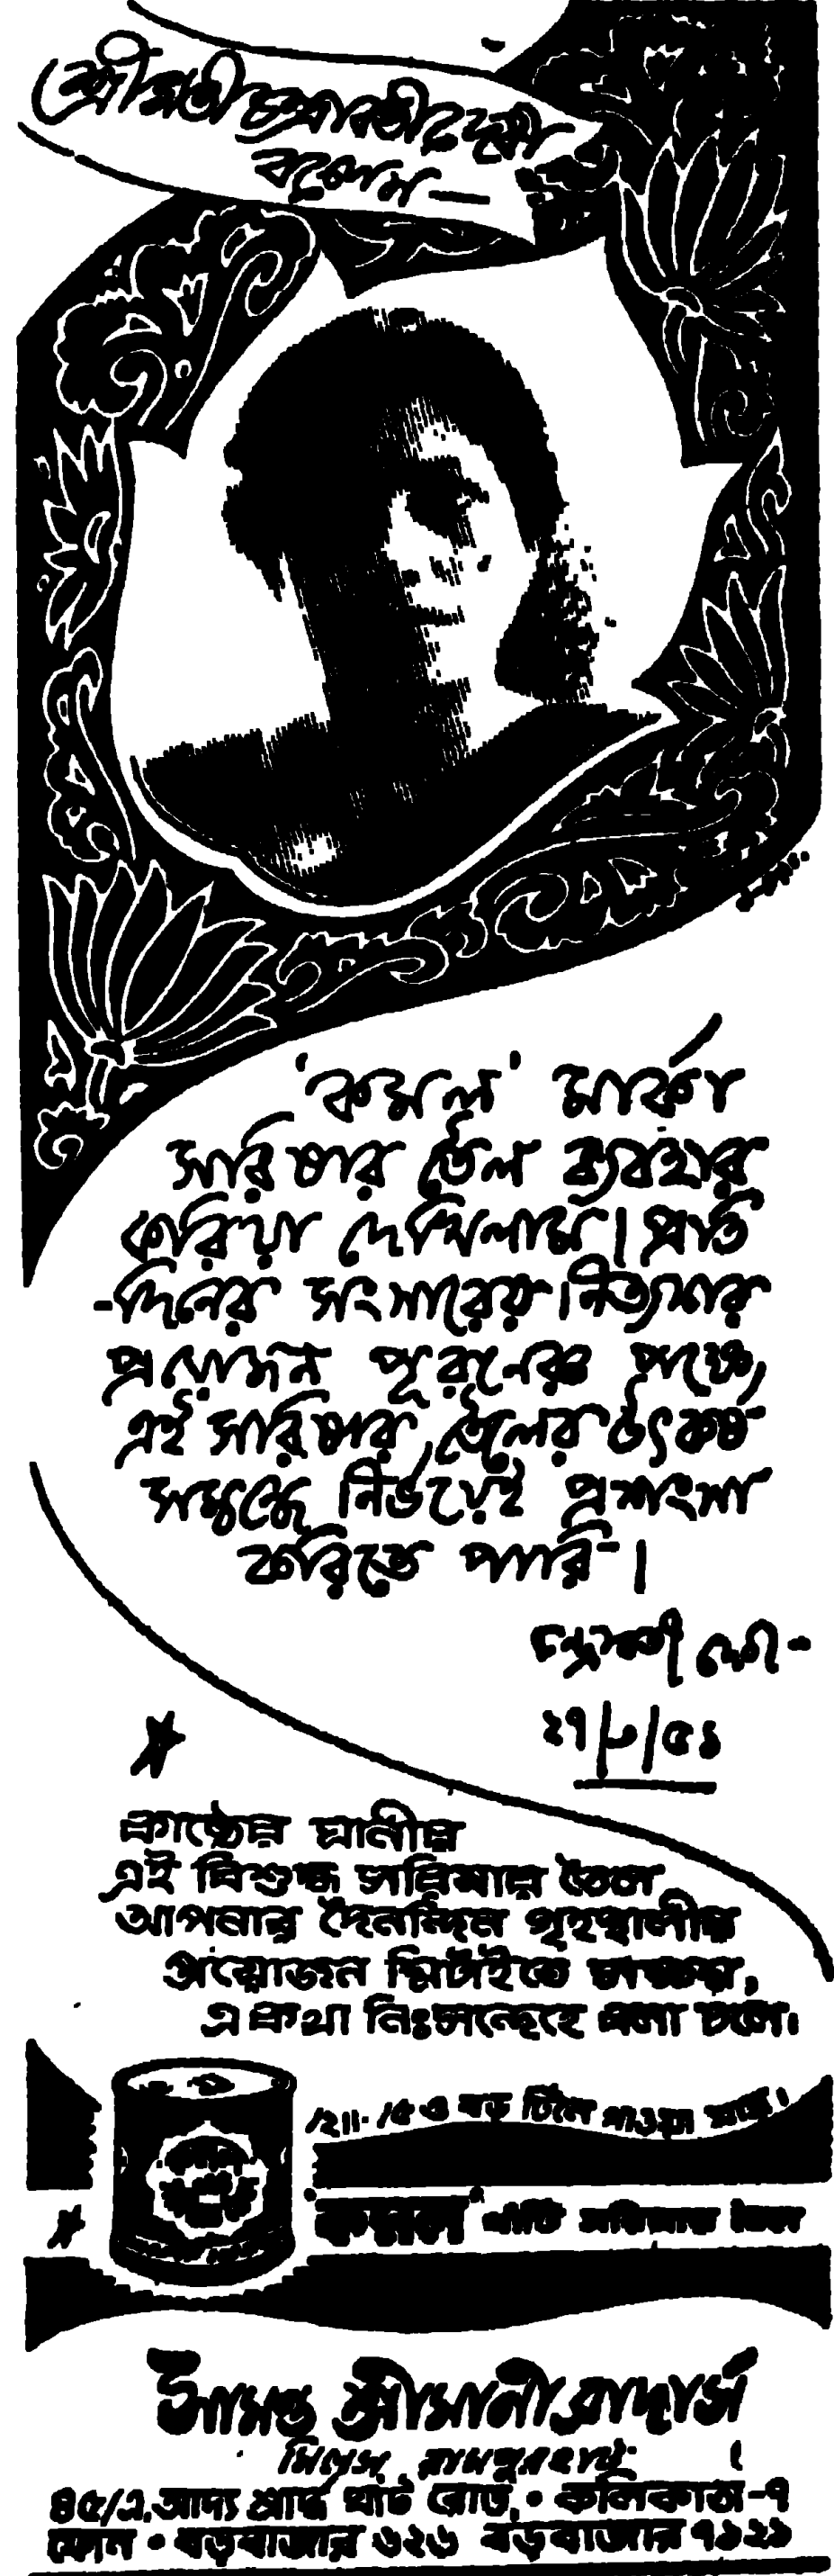 শ্রীমতী চন্দ্রাবতী দেবী
বলেন —
'কমল' মার্কা
সরিষার তৈল ব্যবহার
করিয়া দেখিলাম। প্রতি
-দিনের সংসারের নিত্যকার
প্রয়োজন পূরনের পক্ষে,
এই সরিষার তৈলের উৎকর্ষ
সম্বন্ধে নির্ভয়েই প্রশংসা
করিতে পারি।
চন্দ্রাবতী দেবী -
২৭/৮/৫১
কাষ্ঠের ঘানীর
এই বিশুদ্ধ সরিষার তৈল
আপনার দৈনন্দিন গৃহস্থালীর
প্রয়োজন মিটাইতে সক্ষম,
একথা নিঃসন্দেহে বলা চলে।
/২॥· /৫ ও বড় টিনে পাওয়া যায়।
"কমল" খাঁটি সরিষার তৈল
সামন্ত শ্রীমানী ব্রাদার্স
মিলস্ রামপুরহাট
৪৫/এ, আদ্য শ্রাদ্ধ ঘাট রোড, • কলিকাতা-৭
ফোন • বড়বাজার ৬২৬ বড়বাজার ৭১২১